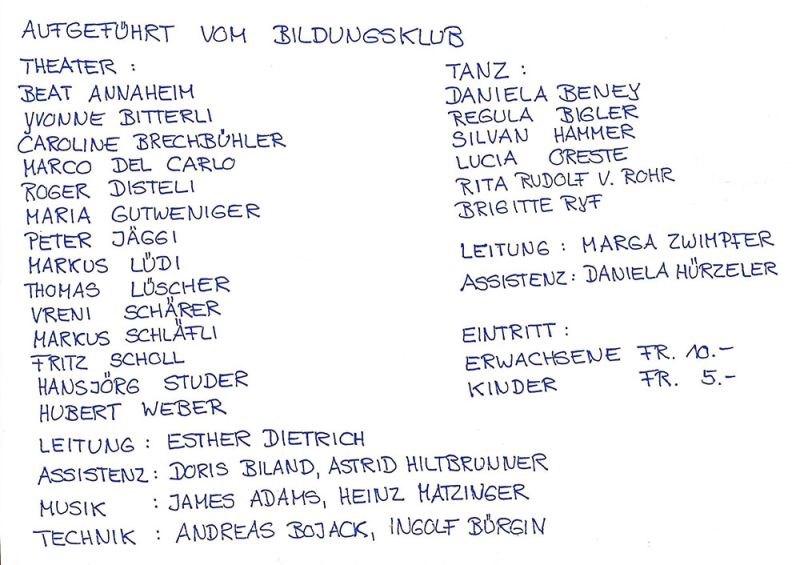 AUFGEFÜHRT VOM BILDUNGSKLUB
THEATER :
BEAT ANNAHEIM
YVONNE BITTERLI
CAROLINE BRECHBÜHLER
MARCO DEL CARLO
ROGER DISTELI
MARIA GUTWENIGER
PETER JÄGGI
MARKUS LÜDI
THOMAS LÜSCHER
VRENI SCHÄRER
MARKUS SCHLÄFLI
FRITZ SCHOLL
HANSJÖRG STUDER
HUBERT WEBER
LEITUNG : ESTHER DIETRICH
ASSISTENZ : DORIS BILAND, ASTRID HILTBRUNNER
MUSIK : JAMES ADAMS, HEINZ MATZINGER
TECHNIK : ANDREAS BOJACK, INGOLF BÜRGIN
TANZ :
DANIELA BENEY
REGULA BIGLER
SILVAN HAMMER
LUCIA ORESTE
RITA RUDOLF V. ROHR
BRIGITTE RYF
LEITUNG : MARGA ZWIMPFER
ASSISTENZ : DANIELA HÜRZELER
EINTRITT :
ERWACHSENE FR. 10.-
KINDER FR. 5.-